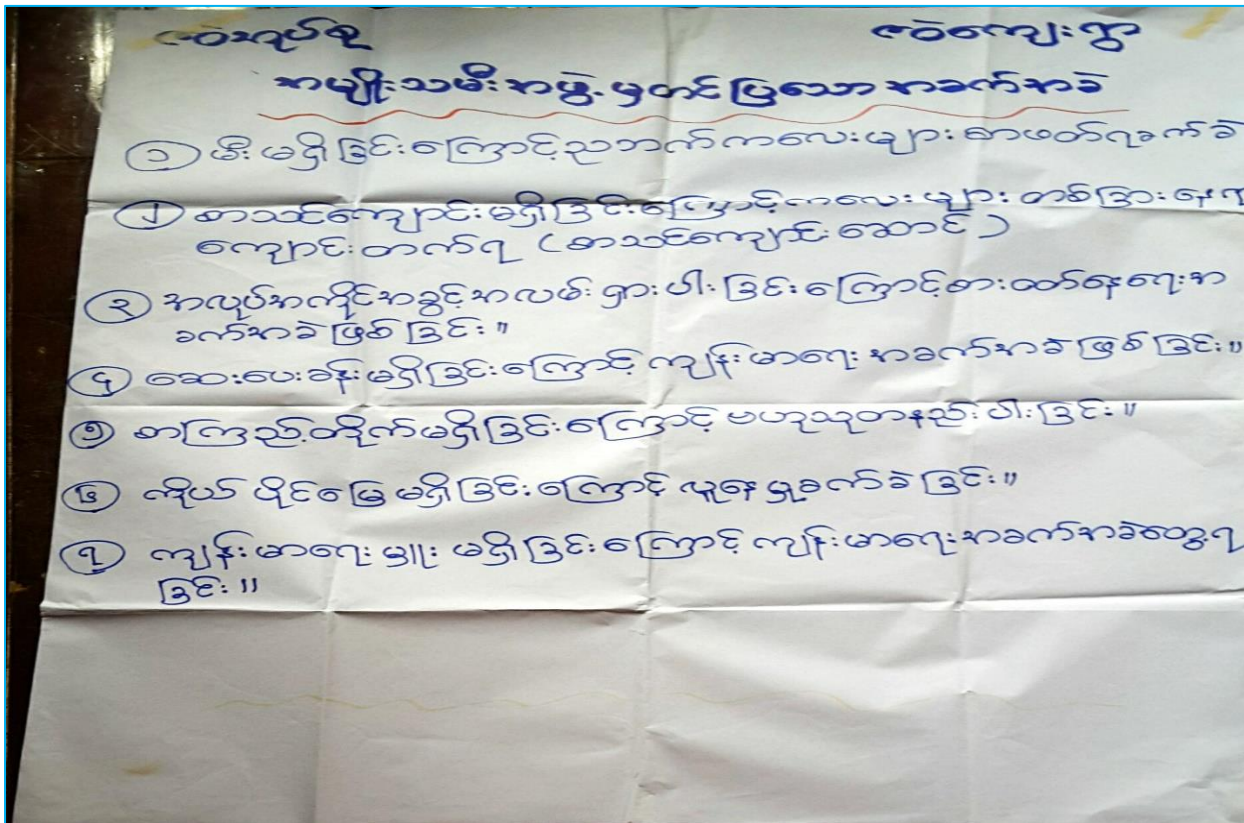 ဇဝဲအုပ်စု ဇဝဲကျေးရွာ
အမျိုးသမီးအဖွဲ့မှတင်ပြသောအခက်အခဲ
၁ မီးမရှိခြင်းကြောင့်ညဘက်ကလေးများစာဖတ်ရခက်ခဲ
၂ စာသင်ကျောင်းမရှိခြင်းကြောင့်ကလေးများ တစ်ခြားနေရ
ကျောင်းတက်ရ (စာသင်ကျောင်းဆောင်)
၃ အလုပ်အကိုင်အခွင့်အလမ်းရှားပါးခြင်းကြောင့်စားဝတ်နေရေးအ
ခက်အခဲဖြစ်ခြင်း။
၄ ဆေးပေးခန်းမရှိခြင်းကြောင့် ကျန်းမာရေးအခက်အခဲဖြစ်ခြင်း။
၅ စာကြည့်တိုက်မရှိခြင်းကြောင့် ဗဟုသုတနည်းပါးခြင်း။
၆ ကိုယ်ပိုင်မြေမရှိခြင်းကြောင့် လူနေမှုခက်ခဲခြင်း။
၇ ကျန်းမာရေးမှူးမရှိခြင်းကြောင့် ကျန်းမာရေးအခက်အခဲတွေ့ရ
ခြင်း။